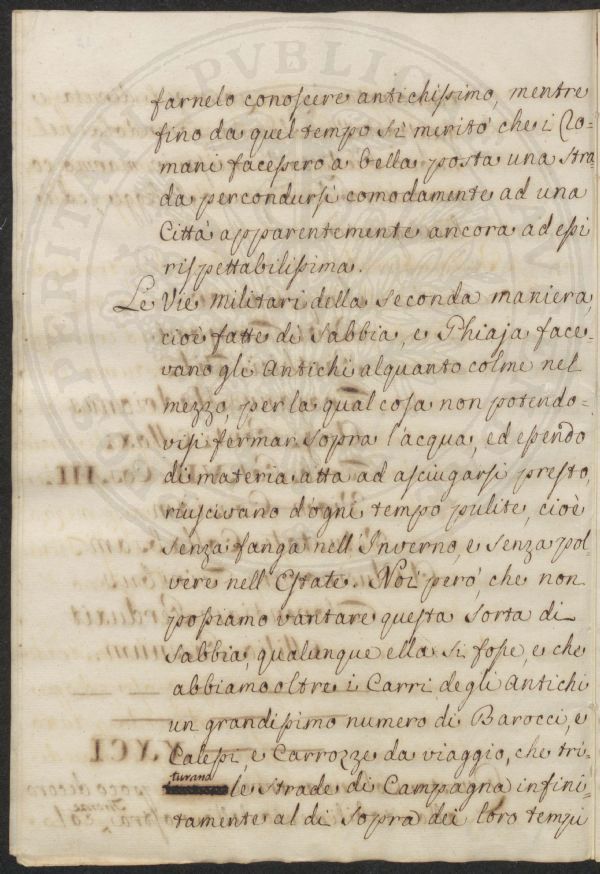 farnelo conoscere antichissimo, mentre
fino da quel tempo si meritò che i Ro=
mani facessero a bella posta una stra=
da percondursi comodamente ad una
Città apparentemente ancora ad essi
rispettabilissima.
Le Vie Militari della seconda maniera,
cioè fatte di Sabbia, e Ghiaja face=
vano gli Antichi alquanto colme nel
mezzo, per la qual cosa non potendo=
visi fermar sopra l'acqua, ed essendo
di materia atta ad asciugarsi presto,
riuscivano d'ogni tempo pulite, cioè
senza fanga nell'Inverno, e senza pol
vere nell'Estate. Noi però, che non
possiamo vantare questa sorta di
Sabbia, qualunque ella si fosse, e che
abbiamo oltre i Carri degli Antichi
un grandissimo numero di Barocci, e
Calessi, e Carrozze da viaggio, che tri=
turano le strade di Campagna infini=
tamente al di sopra dei loro tempi